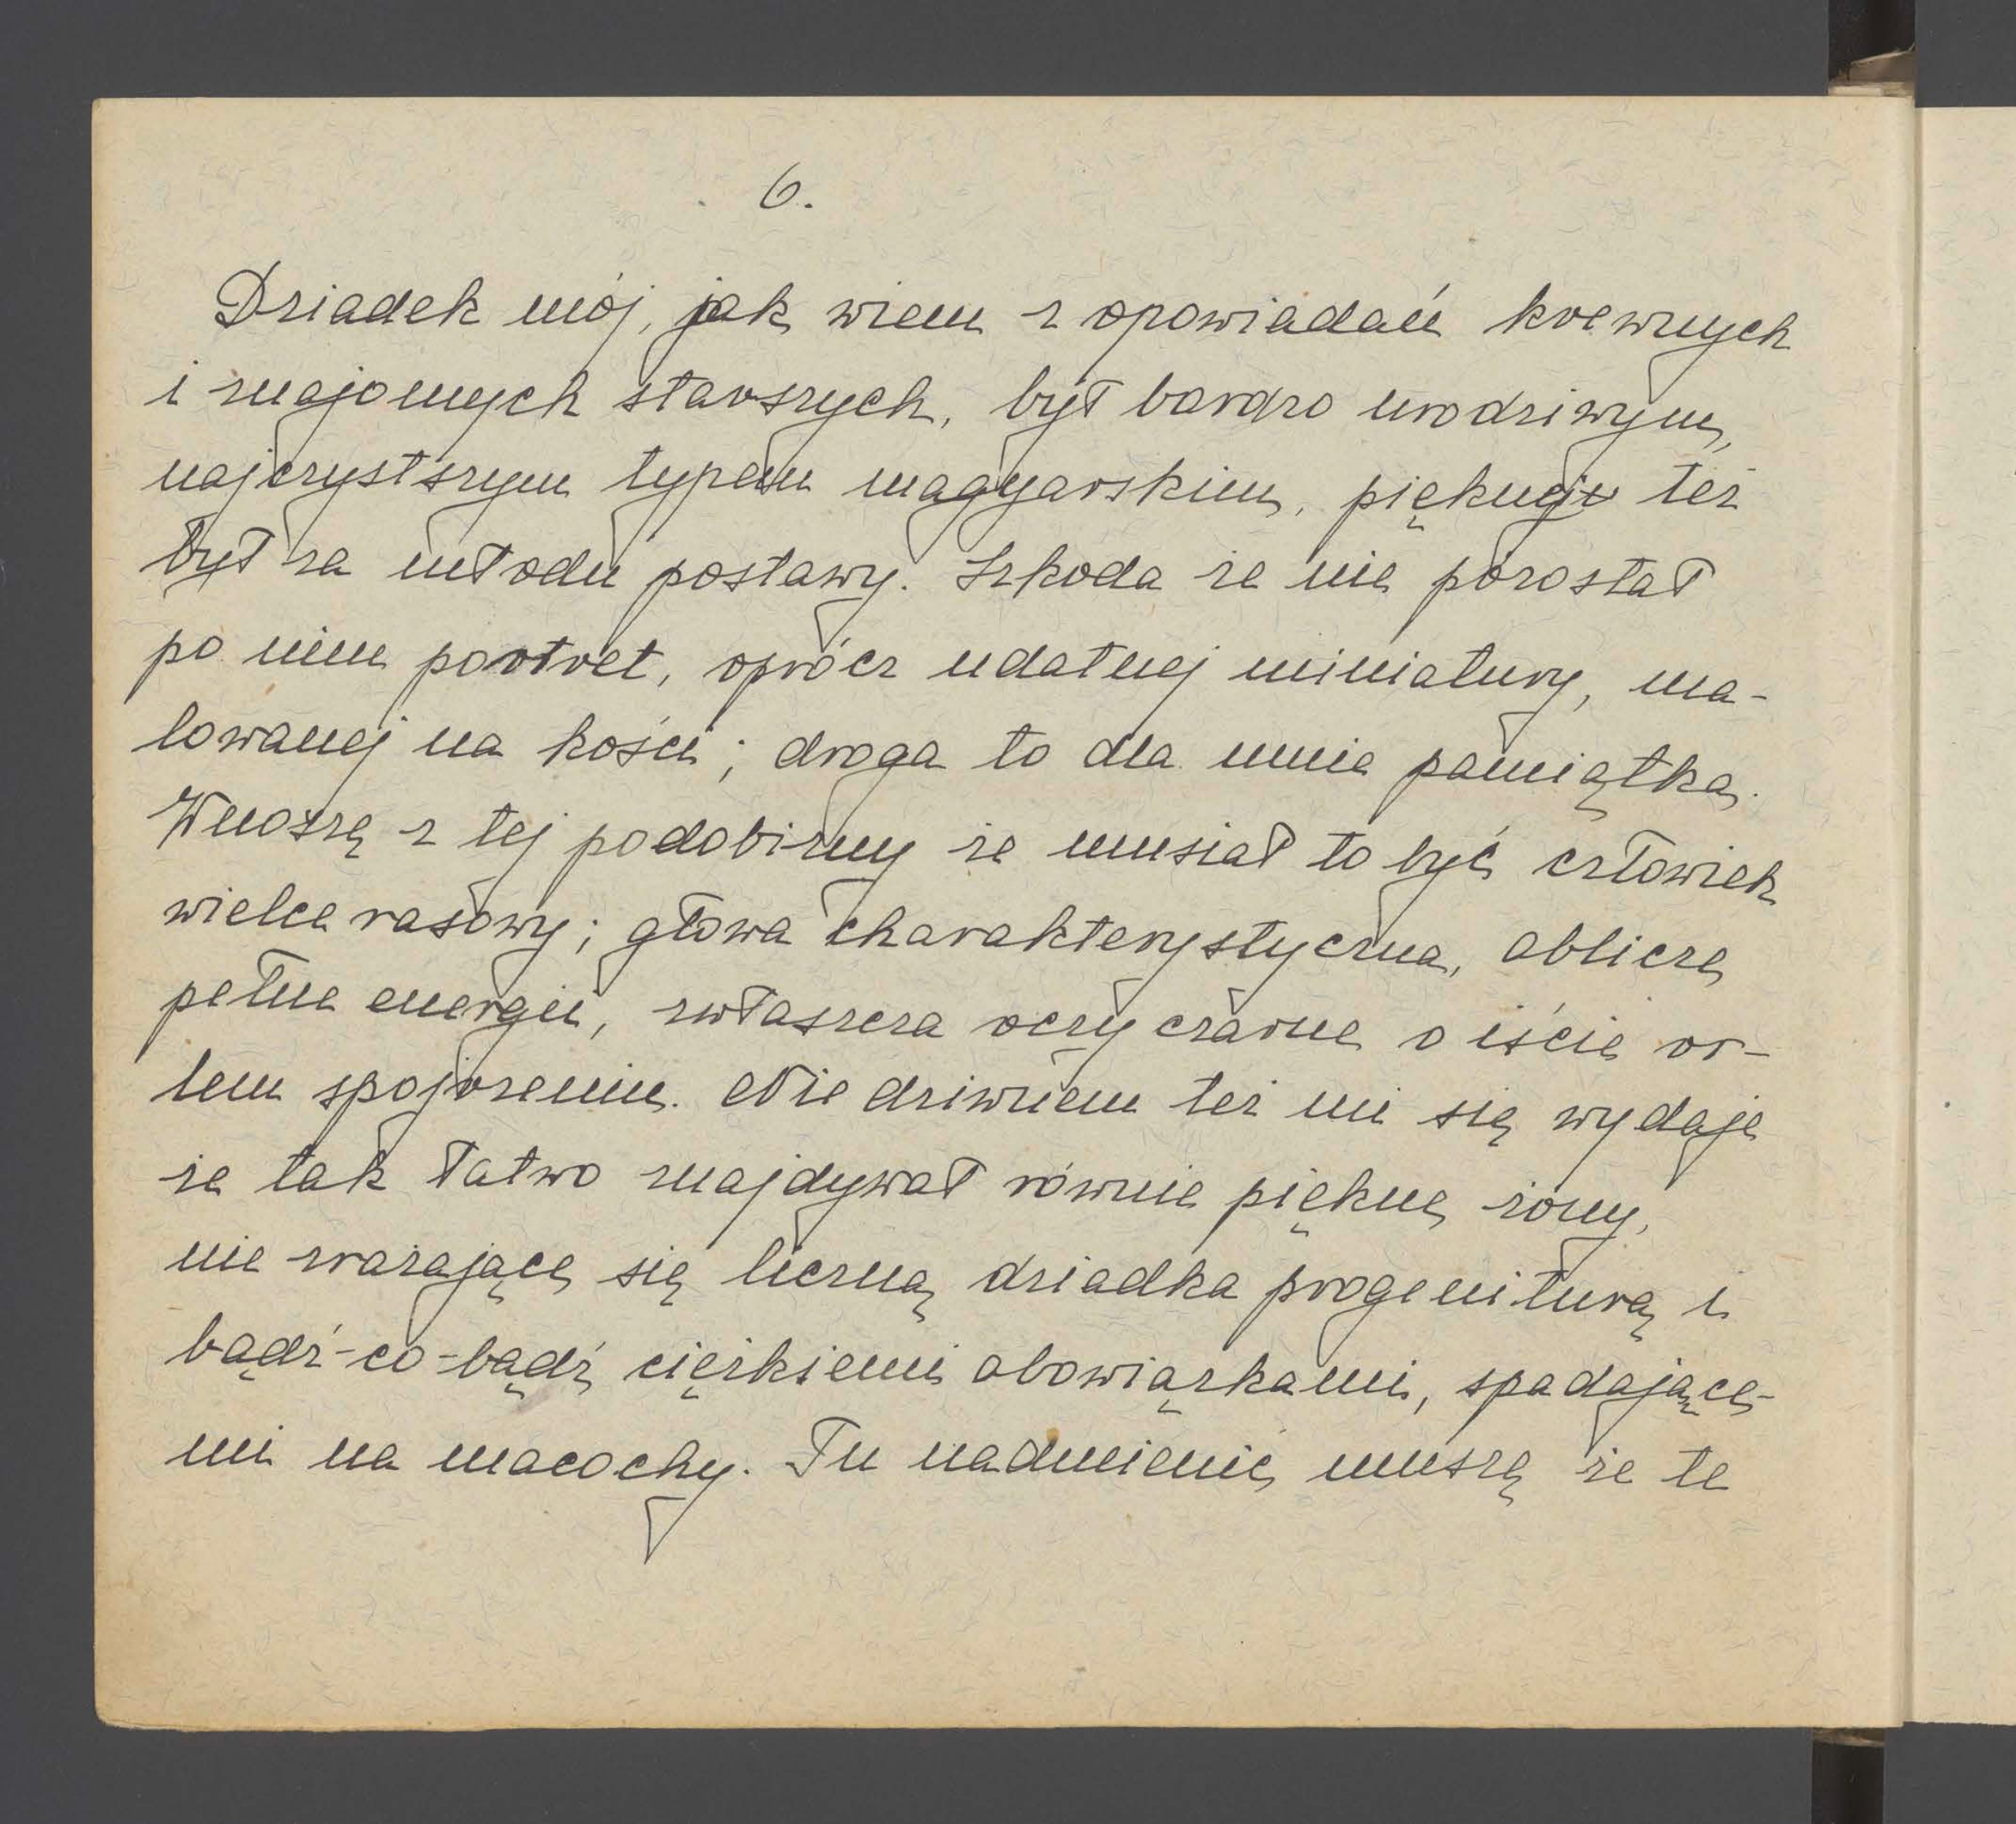 6.
Dziadek mój, jak wiem z opowiadań krewnych
i znajomych starszych, był bardzo urodziwym,
najczystszym typem magyarskim, pięknej też
był za młodu postawy. Szkoda że nie pozostał
po nim portret, oprócz udatnej miniatury, ma-
lowanej na kości; droga to dla mnie pamiątka.
Wnoszę z tej podobizny że musiał to być człowiek
wielce rasowy; głowa charakterystyczna, oblicze
pełne energii, zwłaszcza oczy czarne o iście or-
lem spojrzeniu. Nie dziwnem też mi się wydaje
że tak łatwo znajdywał równie piękne żony,
nie zrażające się liczną dziadka progeniturą i
bądź-co-bądź ciężkiemi obowiązkami, spadające-
mi na macochy. Tu nadmienić muszę że te